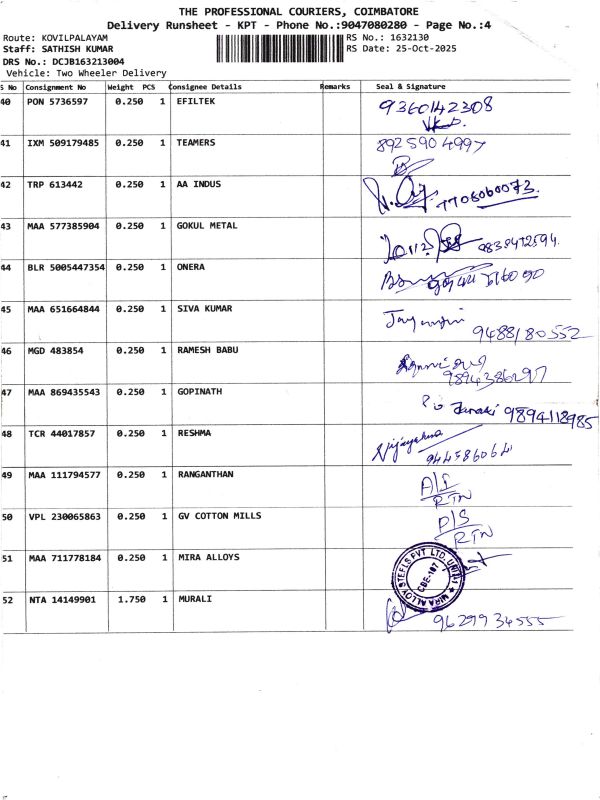 THE PROFESSIONAL COURIERS, COIMBATORE
Delivery Runsheet - KPT - Phone No.:9047080280 - Page No.:4
Route: KOVILPALAYAM RS No.: 1632130
Staff: SATHISH KUMAR RS Date: 25-Oct-2025
DRS No.: DCJB163213004
Vehicle: Two Wheeler Delivery
S No Consignment No Weight PCS Consignee Details Remarks Seal & Signature
40 PON 5736597 0.250 1 EFILTEK 9360142308
41 IXM 509179485 0.250 1 TEAMERS 8925904997
42 TRP 613442 0.250 1 AA INDUS 7706060073.
43 MAA 577385904 0.250 1 GOKUL METAL 9838472594.
44 BLR 5005447354 0.250 1 ONERA
45 MAA 651664844 0.250 1 SIVA KUMAR
9488180552
46 MGD 483854 0.250 1 RAMESH BABU
9894386297
47 MAA 869435543 0.250 1 GOPINATH Janaki 9894118985
48 TCR 44017857 0.250 1 RESHMA Vijayakumar
49 MAA 111794577 0.250 1 RANGANTHAN A/S
RTN
50 VPL 230065863 0.250 1 GV COTTON MILLS D/S
RTN
51 MAA 711778184 0.250 1 MIRA ALLOYS MIRA ALLOY STEELS PVT LTD. UNIT-1
CBE-107
52 NTA 14149901 1.750 1 MURALI 9629934555